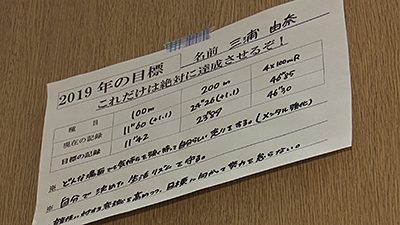 2019 年の目標 名前 三浦 由奈
これだけは絶対に達成させるぞ!
種目 100m 200m 4×100mR
現在の記録 11"60 (+1.1) 24"26 (+1.1) 46"85
目標の記録 11"42 23"89 46"30
※ どんな場面でも気持ちを強く持って自分らしい走りをする。(メンタル強化)
※ 自分で決めた生活リズムを守る。
競技に対する意識を高めつつ、目標に向かって努力を怠らない。